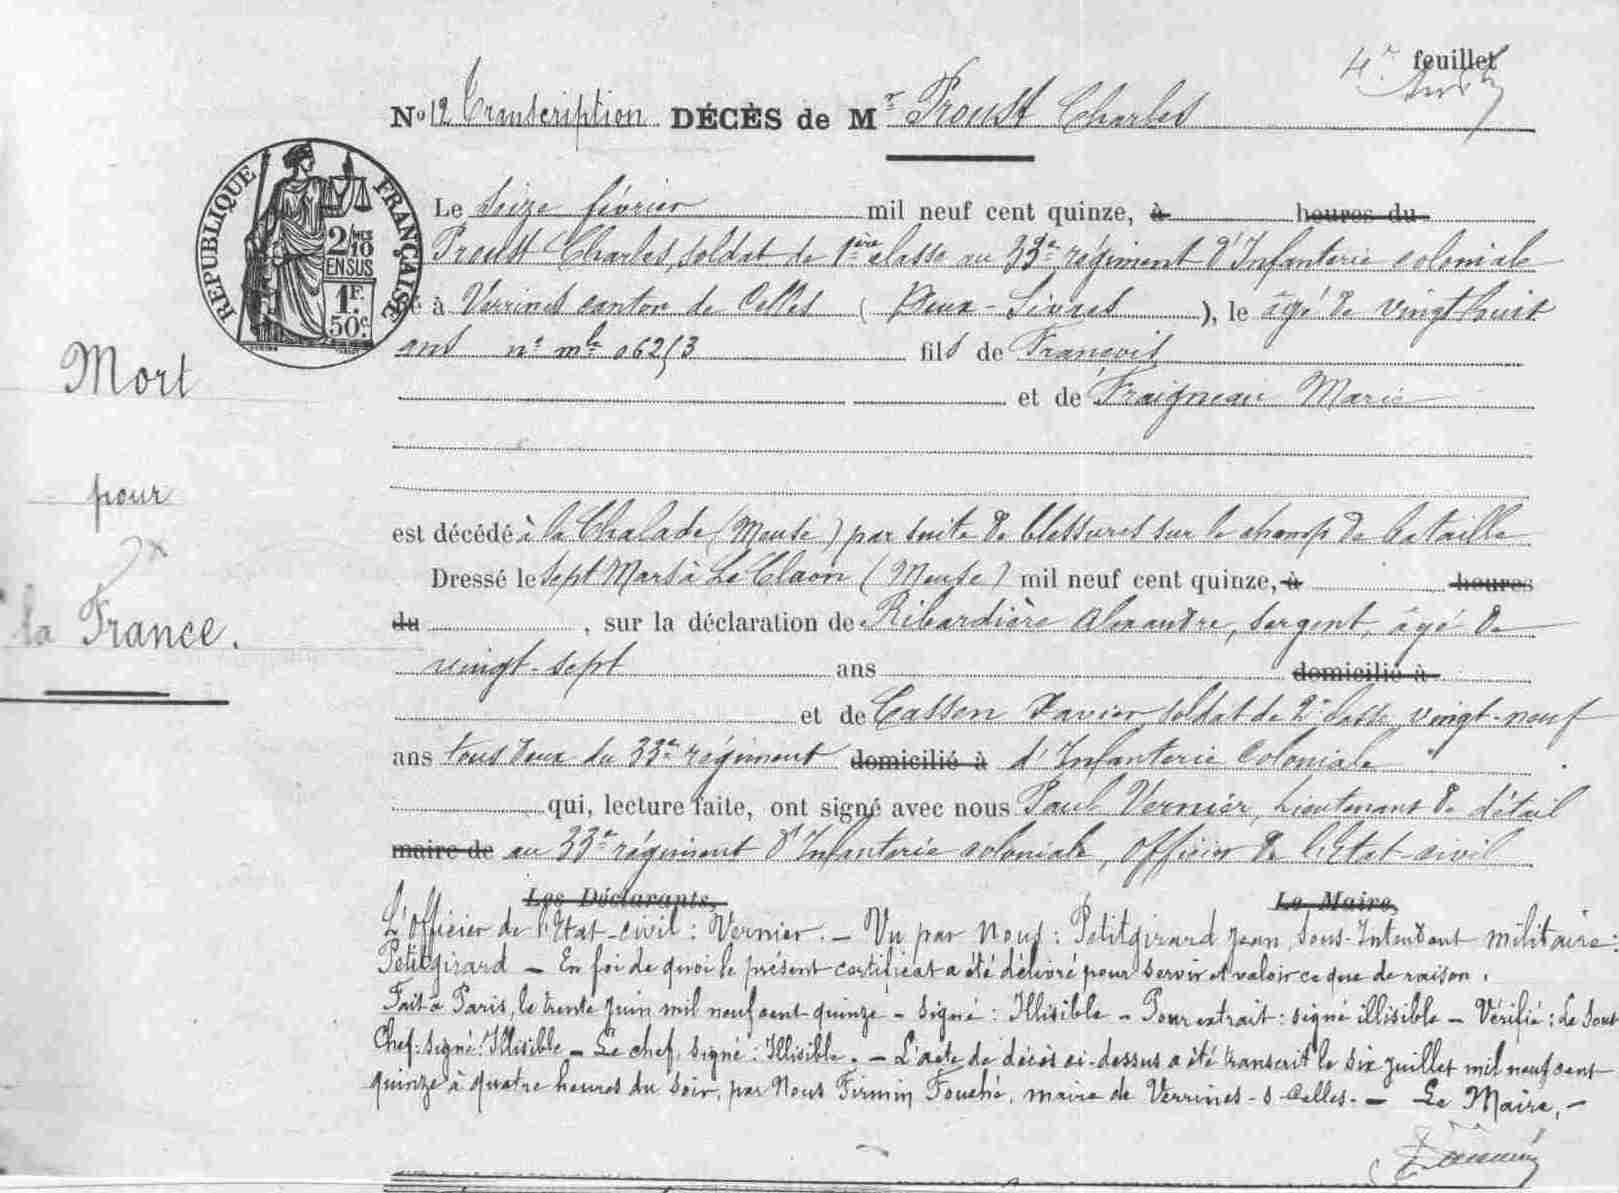 4e feuillet
No 12 Transcription DÉCÈS de Mr Proust Charles
RÉPUBLIQUE FRANÇAISE
2/10 MES
EN SUS
1F.
50c.
Le Seize février mil neuf cent quinze, à heures du
Proust Charles, soldat de 1ère classe au 33e régiment d'Infanterie coloniale
é à Verrines canton de Celles (Deux-Sèvres), le âgé de vingt huit
ans no mle 06213 fils de François
et de Fraigneau Marie
est décédé à la Chalade (Meuse) par suite de blessures sur le champ de bataille
Dressé le sept Mars à Le Claon (Meuse) mil neuf cent quinze, à heures
du , sur la déclaration de Ribardière Alexandre, sergent, âgé de
vingt-sept ans domicilié à
et de Cassen Xavier, soldat de 2e classe, vingt-neuf
ans tous deux du 33e régiment domicilié à d'Infanterie Coloniale
qui, lecture faite, ont signé avec nous Paul Vernier, Lieutenant de détail
maire de au 33e régiment d'Infanterie coloniale, officier de l'Etat-civil
Les Déclarants, Le Maire,
L'officier de l'Etat-civil : Vernier. - Vu par Nous : Petitgirard Jean, Sous-Intendant militaire :
Petitgirard - En foi de quoi le présent certificat a été délivré pour servir et valoir ce que de raison.
Fait à Paris, le trente Juin mil neuf cent quinze - Signé : Illisible - Pour extrait : signé illisible - Vérifié : Le Sous
Chef : Signé : Illisible - Le chef, signé : Illisible. - L'acte de décès ci-dessus a été transcrit le six juillet mil neuf cent
quinze à quatre heures du soir, par Nous Firmin Fouché, maire de Verrines-s-Celles. - Le Maire, -
Mort
pour
la France.